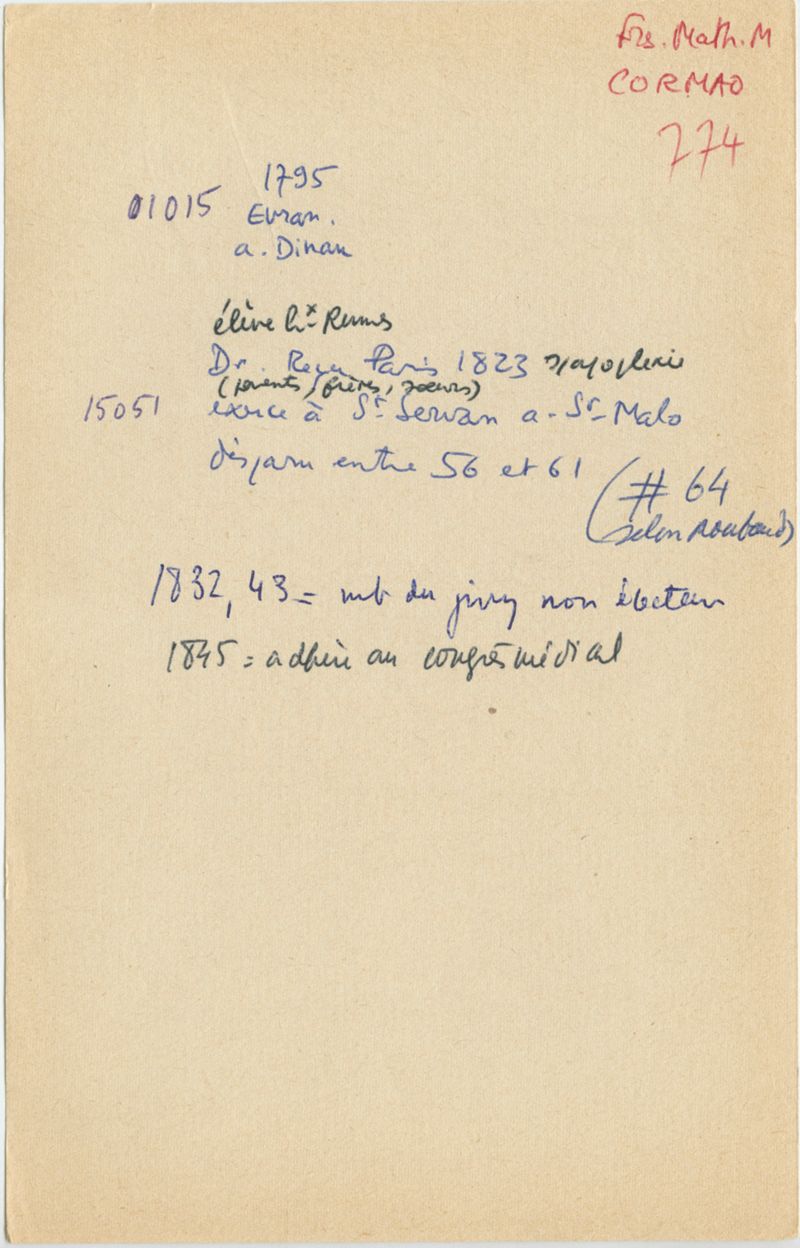 Frs. Math. M
CORMAO
774
1795
01015 Evran.
a. Dinan
élève hx Rennes
Dr. Reçu Paris 1823
(parents, frères, sœurs)
15051 exerce à St Servan a. St Malo
disparu entre 56 et 61
(# 64
selon Roubaud)
1832, 43 = mb du jury non électeur
1845 = adhère au congrès médical